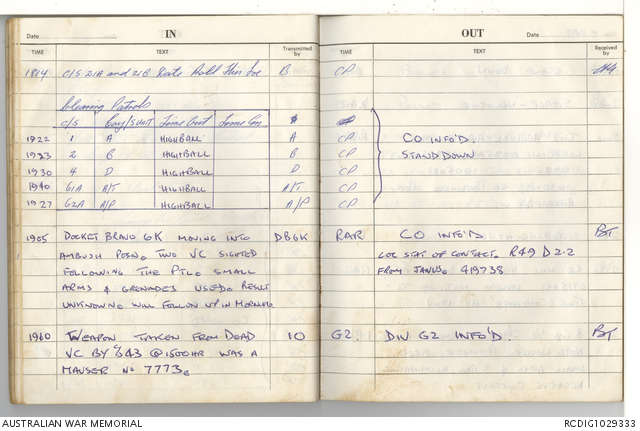 IN
Date
TIME TEXT Transmitted by
1804 C/S 21A and 21B B
Clearing Patrols
C/S Coy/SUNIT Time Out Time In
1922 1 A HIGHBALL A
1933 2 B HIGHBALL B
1930 4 D HIGHBALL D
1940 61A A/T HIGHBALL A/T
1927 62A A/P HIGHBALL A/P
1905 DOCKET BRAVO 6K MOVING INTO DB6K
AMBUSH POSN. TWO VC SIGHTED
FOLLOWING THE PTL. SMALL
ARMS & GRENADES USED. RESULT
UNKNOWN. WILL FOLLOW UP IN MORNING
1940 WEAPON TAKEN FROM DEAD IO
VC BY C/S 43 @ 1500HR WAS A
MAUSER No 7773.
OUT
Date
TIME TEXT Received by
CP
CP CO INFO'D.
CP STAND DOWN
CP
CP
CP
RAR CO INFO'D BT
LOC STAT OF CONTACT. R49 D2.2
FROM JANUS. 419738
G2. DIV G2 INFO'D. BT
AUSTRALIAN WAR MEMORIAL
RCDIG1029333